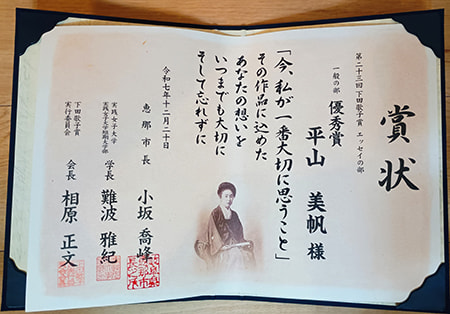 賞状
第二十三回 下田歌子賞 エッセイの部
一般の部 優秀賞
平山 美帆 様
「今、私が一番大切に思うこと」
その作品に込めた
あなたの想いを
いつまでも大切に
そして忘れずに
令和七年十二月二十日
恵那市長 小坂 喬峰
実践女子大学
実践女子大学短期大学部
学長 難波 雅紀
下田歌子賞
実行委員会
会長 相原 正文